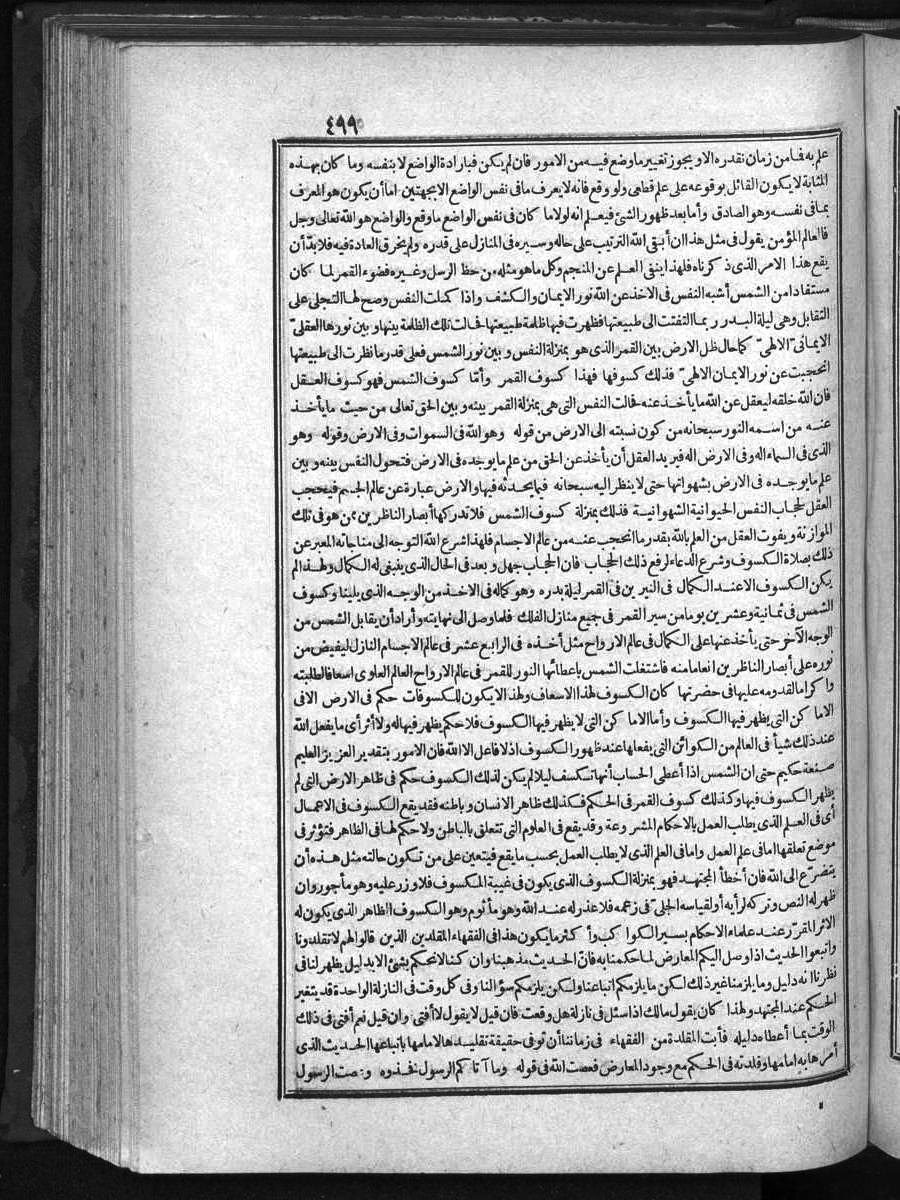 ٤٩٩
علم به فما من زمان نقدره الا ويجوز تغيير ما وضع فيه من الامور فان لم يكن فبارادة الواضع لا بنفسه وما كان بهذه
المثابة لا يكون القائل بوقوعه على علم قطعى ولو وقع فانه لا يعرف ما فى نفس الواضع الا بجهتين اما أن يكون هو المعرف
بما فى نفسه وهو الصادق وأما بعد ظهور الشئ فيعلم انه لولا ما كان فى نفس الواضع ما وقع والواضع هو الله تعالى وجل
فالعالم المؤمن يقول فى مثل هذا ان أبقى الله الترتيب على حاله وسيره فى المنازل على قدره ولم يخرق العادة فيه فلا بدّ أن
يقع هذا الامر الذى ذكرناه فلهذا ينفى العلم عن المنجم وكل ما هو مثله من حظ الرسل وغيره فضوء القمر لما كان
مستفادا من الشمس أشبه النفس فى الاخذ عن الله نور الايمان والكشف واذا كملت النفس وصح لها التجلى على
التقابل وهى ليلة البدر ربما التفتت الى طبيعتها فظهرت فيها ظلمة طبيعتها فحالت تلك الظلمة بينها وبين نورها العقلىّ
الايمانىّ الالهىّ كما حال ظل الارض بين القمر الذى هو بمنزلة النفس وبين نور الشمس فعلى قدر ما نظرت الى طبيعتها
انحجبت عن نور الايمان الالهىّ فذلك كسوفها فهذا كسوف القمر وأمّا كسوف الشمس فهو كسوف العقل
فان الله خلقه ليعقل عن الله ما يأخذ عنه فحالت النفس التى هى بمنزلة القمر بينه وبين الحق تعالى من حيث ما يأخذ
عنه من اسمه النور سبحانه من كون نسبته الى الارض من قوله وهو الله فى السموات وفى الارض وقوله وهو
الذى فى السماء اله وفى الارض اله فيريد العقل أن يأخذ عن الحق من علم ما يوجده فى الارض فتحول النفس بينه وبين
علم ما يوجده فى الارض بشهواتها حتى لا ينظر اليه سبحانه فيما يحدثه فيها والارض عبارة عن عالم الجسم فيحجب
العقل لحجاب النفس الحيوانية الشهوانية فذلك بمنزلة كسوف الشمس فلا تدركها أبصار الناظرين ممن هو فى تلك
الموازنة ويفوت العقل من العلم بالله بقدر ما انحجب عنه من عالم الاجسام فلهذا شرع الله التوجه الى مناجاته المعبر عن
ذلك بصلاة الكسوف وشرع الدعاء لرفع ذلك الحجاب فان الحجاب جهل وبعد فى الحال الذى ينبغى له الكمال ولهذا لم
يكن الكسوف الا عند الكمال فى النيرين فى القمر ليلة بدره وهو كماله فى الاخذ من الوجه الذى يلينا وكسوف
الشمس فى ثمانية وعشرين يوما من سير القمر فى جميع منازل الفلك فلما وصل الى نهايته وأراد أن يقابل الشمس من
الوجه الآخر حتى يأخذ عنها على الكمال فى عالم الارواح مثل أخذه فى الرابع عشر فى عالم الاجسام النازل ليفيض من
نوره على أبصار الناظرين انعاما منه فاشتغلت الشمس باعطائها النور للقمر فى عالم الارواح العالم العلوى اسعافا لطلبته
واكراما لقدومه عليها فى حضرتها كان الكسوف لهذا الاسعاف ولهذا لا يكون للكسوفات حكم فى الارض الا فى
الاماكن التى يظهر فيها الكسوف وأما الاماكن التى لا يظهر فيها الكسوف فلا حكم يظهر فيها له ولا أثر أى ما يفعل الله
عند ذلك شيأ فى العالم من الكوائن التى يفعلها عند ظهور الكسوف اذ لا فاعل الا الله فان الامور بتقدير العزيز العليم
صنعة حكيم حتى ان الشمس اذا أعطى الحساب أنها تكسف ليلا لم يكن لذلك الكسوف حكم فى ظاهر الارض التى لم
يظهر الكسوف فيها وكذلك كسوف القمر فى الحكم فكذلك ظاهر الانسان وباطنه فقد يقع الكسوف فى الاعمال
أى فى العلم الذى يطلب العمل بالاحكام المشروعة وقد يقع فى العلوم التى تتعلق بالباطن ولا حكم لها فى الظاهر فتؤثر فى
موضع تعلقها اما فى علم العمل واما فى العلم الذى لا يطلب العمل بحسب ما يقع فيتعين على من تكون حالته مثل هذه أن
يتضرّع الى الله فان أخطأ المجتهد فهو بمنزلة الكسوف الذى يكون فى غيبة المكسوف فلا وزر عليه وهو مأجور وان
ظهر له النص وتركه لرأيه أو لقياسه الجلىّ فى زعمه فلا عذر له عند الله وهو مأثوم وهو الكسوف الظاهر الذى يكون له
الاثر المقرّر عند علماء الاحكام بسير الكواكب وأكثر ما يكون هذا فى الفقهاء المقلدين الذين قالوا لهم لا تقلدونا
واتبعوا الحديث اذا وصل اليكم المعارض لما حكمنا به فانّ الحديث مذهبنا وان كنا لا نحكم بشئ الا بدليل يظهر لنا فى
نظرنا انه دليل وما يلزمنا غير ذلك لكن ما يلزمكم اتباعنا ولكن يلزمكم سؤالنا وفى كل وقت فى النازلة الواحدة قد يتغير
الحكم عند المجتهد ولهذا كان يقول مالك اذا سئل فى نازلة هل وقعت فان قيل لا يقول لا أفتى وان قيل نعم أفتى فى ذلك
الوقت بما أعطاه دليله فأبت المقلدة من الفقهاء فى زماننا أن توفى حقيقة تقليدها لامامها باتباعها الحديث الذى
أمرها به امامها وقلدته فى الحكم مع وجود المعارض فعصت الله فى قوله وما آتاكم الرسول فخذوه وعصت الرسول